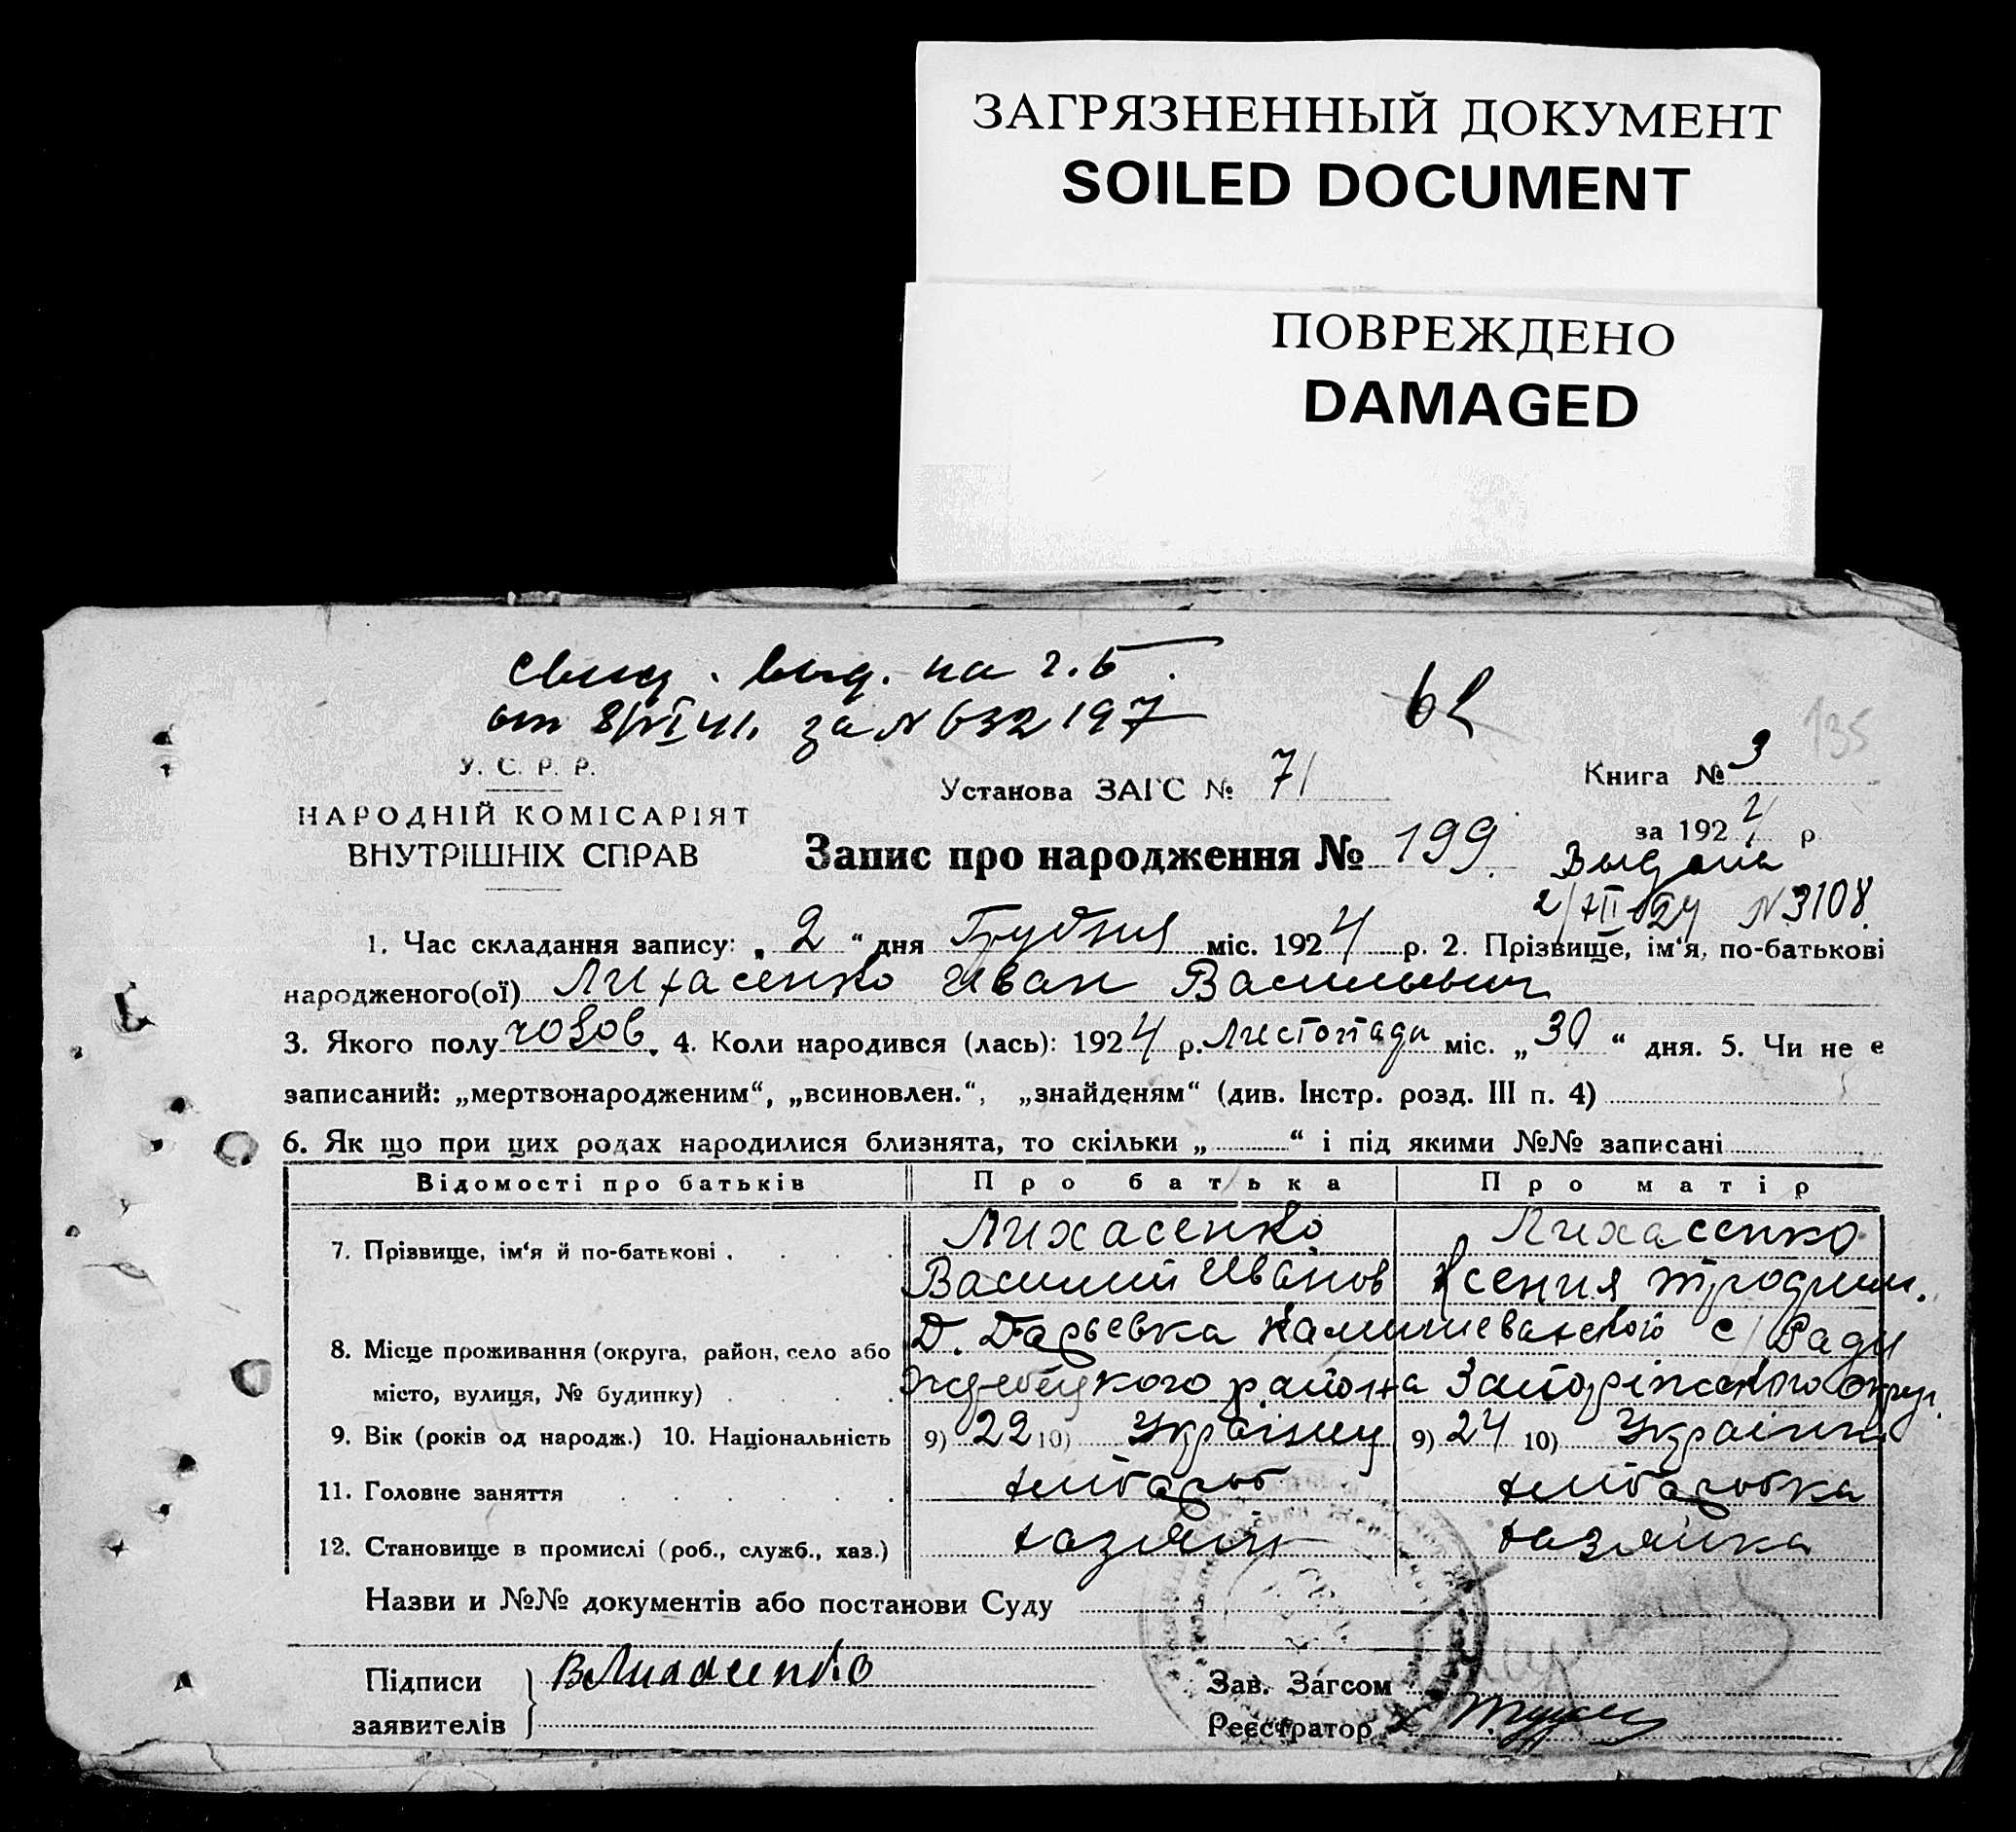 ЗАГРЯЗНЕННЫЙ ДОКУМЕНТ
SOILED DOCUMENT
ПОВРЕЖДЕНО
DAMAGED
свид. выд. на г.б.
от 8/VI 41. за N 632197
135
У. С. Р. Р.
Установа ЗАГС № 71
Книга № 3
НАРОДНІЙ КОМІСАРІЯТ
ВНУТРІШНІХ СПРАВ
за 1924 р
Запис про народження № 199.
Выдана
2/XII 24 N 3108
1. Час складання запису: „ 2 “ дня Грудния міс. 1924 р. 2. Прізвище, ім‘я, по-батькові
народженого(ої) Лихасенко Иван Васильевич
3. Якого полу чолов. 4. Коли народився (лась): 1924 р. Листопади міс. „ 30 “ дня. 5. Чи не е
записаний: „мертвонародженим“, „всиновлен.“, „знайденям“ (див. Інстр. розд. III п. 4)
6. Як що при цих родах народилися близнята, то скільки „ “ і під якими №№ записані
Відомості про батьків Про батька Про матір
7. Прізвище, ім‘я й по-батькові Лихасенко Лихасенко
Василий Иванов Ксения
8. Місце проживання (округа, район, село або Д. Дарьевка с/Ради
місто, вулиця, № будинку) района Запоріжского округ.
9. Вік (років од народж.) 10. Національність 9) 22 10) Українец 9) 24 10) Українка
11. Головне заняття хлібароб хлібаробка
12. Становище в промислі (роб., служб., хаз.) хазяін хазяйка
Назви и №№ документів або постанови Суду
Підписи ВЛихасенко Зав. Загсом
заявителів Реєстратор